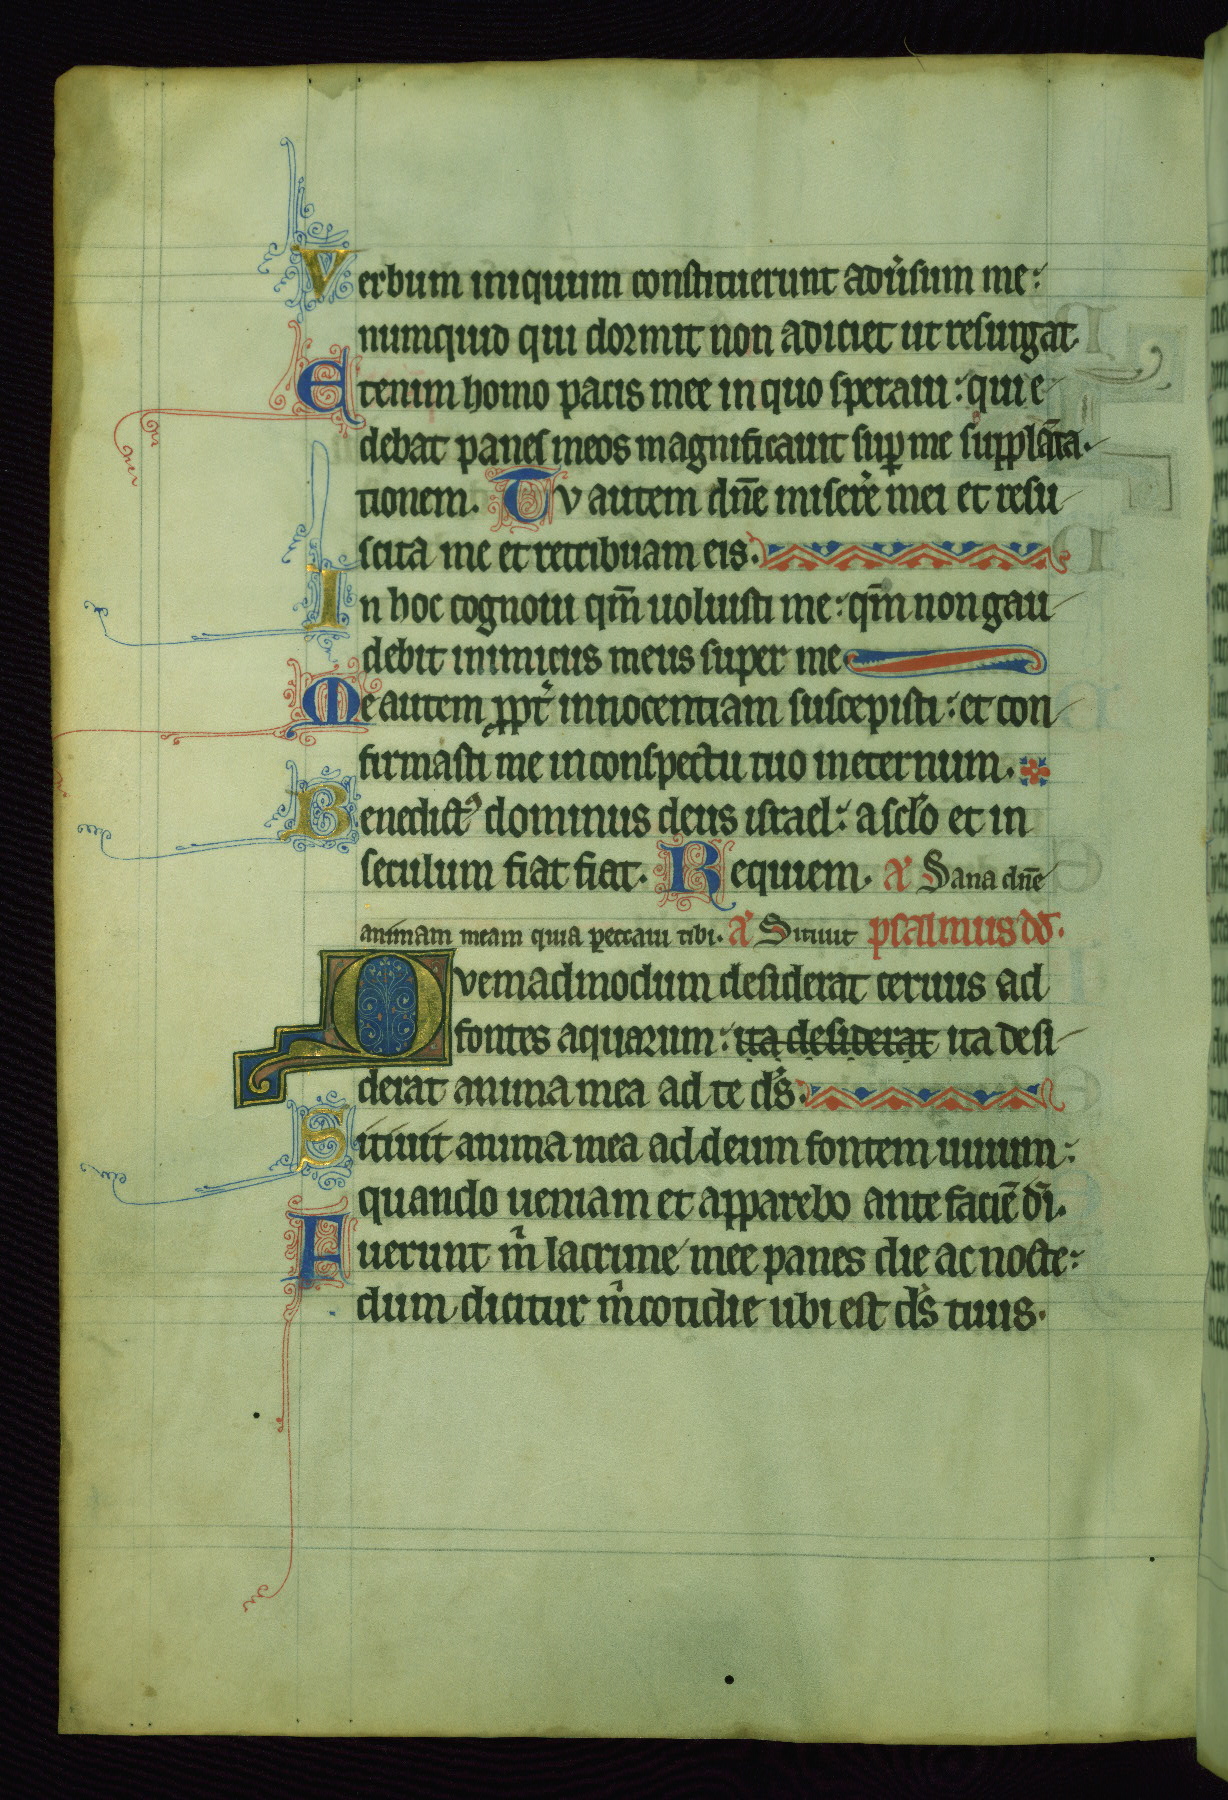 Verbum iniquum constituerunt adu᷑sum me:
numquid qui dormit non adiciet ut resurgat
Etenim homo pacis mee in quo speraui: qui e
debat panes meos magnificauit suꝑ me supplāta
tionem. Tv autem dn̄e miserere mei et resu
scita me et retribuam eis.
In hoc cognoui qm̄ uoluisti me: qm̄ non gau
debit inimicus meus super me
Me autem ꝓpt̉ innocentiam suscepisti: et con
firmasti me in conspectu tuo in eternum.
Benedictꝰ dominus deus israel: a sclo et in
seculum fiat fiat. Requiem. a᷑ Sana dn̄e
animam meam quia peccaui tibi. a᷑ Sitiuit psalmus dd̄.
Qvemadmodum desiderat ceruus ad
fontes aquarum: ita desiderat ita desi
derat anima mea ad te ds̄.
Sitiuit anima mea ad deum fontem uiuum:
quando ueniam et apparebo ante faciē dī.
Fuerunt m̄ lacrime mee panes die ac nocte:
dum dicitur m̄ cotidie ubi est ds̄ tuus.